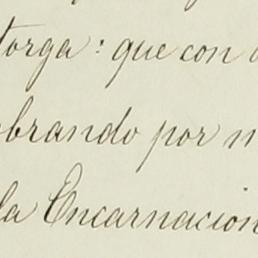 torga: que con
obrando por
la Encarnacion